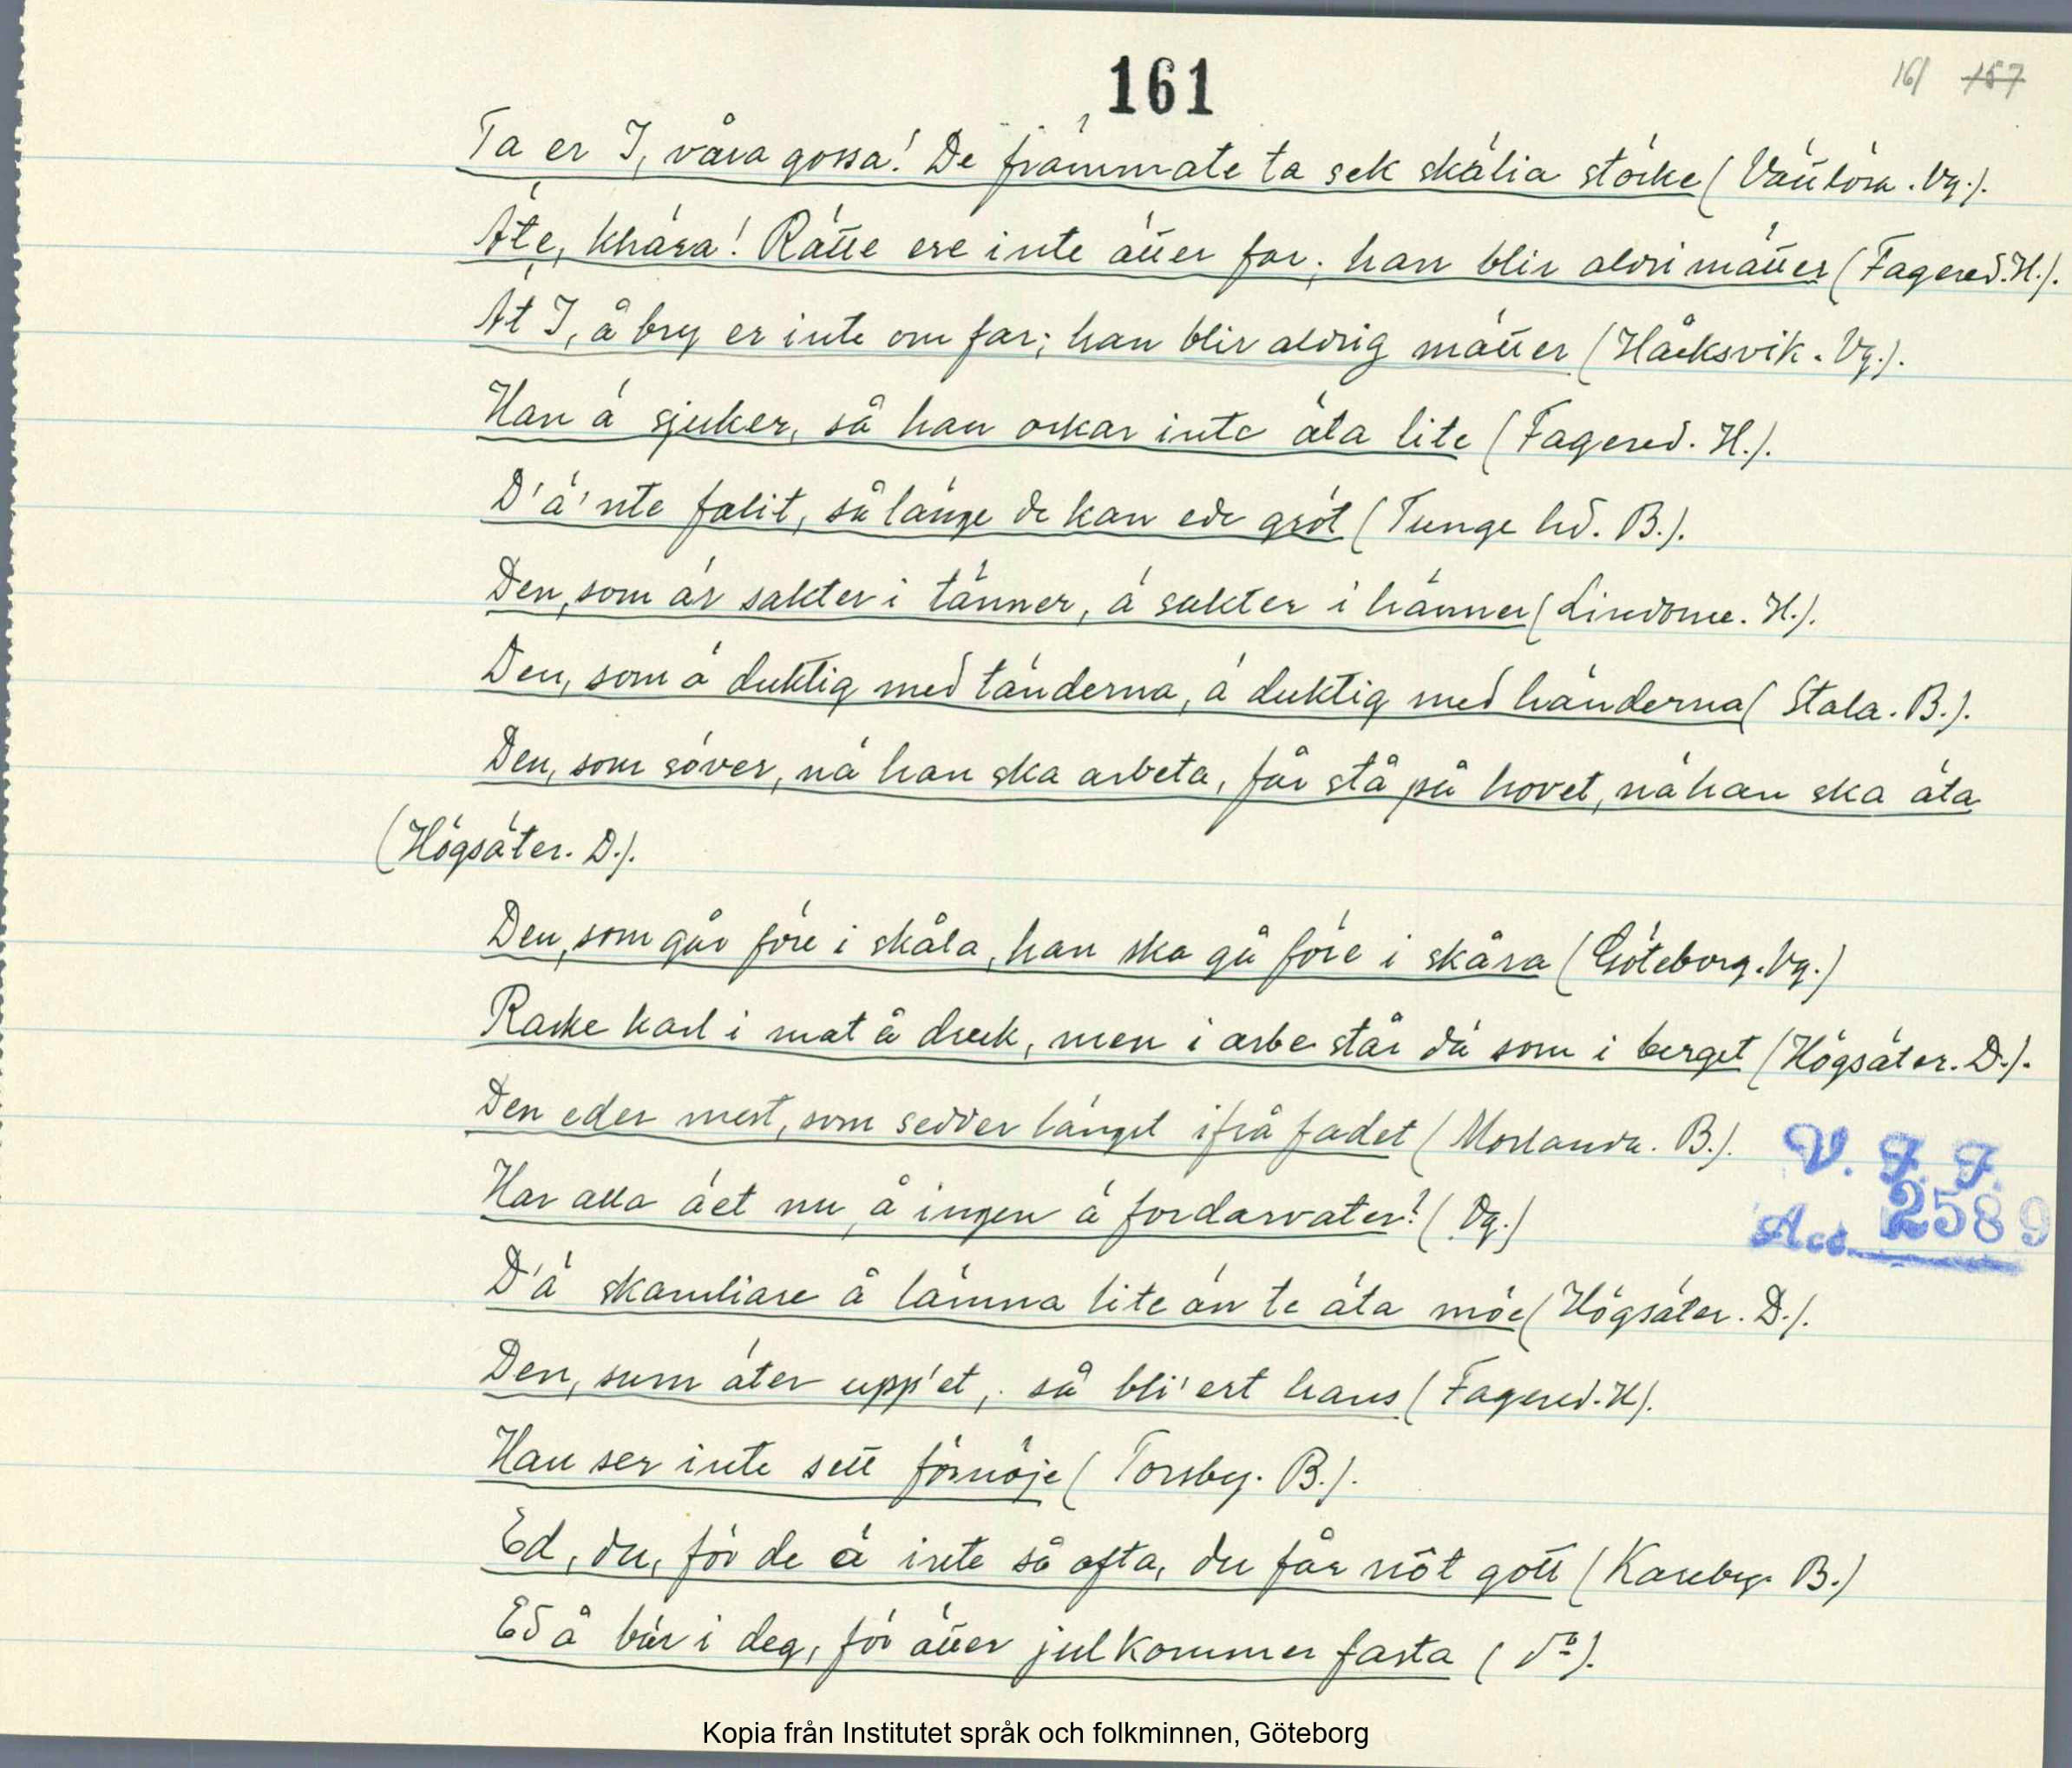 161
161 157
Ta er I, våra gossa! De främmate ta sek skälia störke (Vänlösa. Vg.).
Äte, knära! Rätte ere inte ätter far; han blir aldri mätter (Fagered. H.).
Ät I, å bry er inte om far; han blir aldrig mätter (Håcksvik. Vg.).
Han ä sjuker, så han orkar inte äta lite (Fagered. H.).
D'ä'nte falit, så länge de kan ede gröt (Tunge hd. B.).
Den, som är sakter i tänner, ä sakter i hänner (Lindome. H.).
Den, som ä duktig med tänderna, ä duktig med händerna (Stala. B.).
Den, som söver, nä han ska arbeta, får stå på hovet, nä han ska äta
(Högsäter. D.).
Den, som går före i skåla, han ska gå före i skåra (Göteborg. Vg.)
Raske karl i mat å druk, men i arbe står dä som i berget (Högsäter. D.).
Den eder mest, som sedder längst ifrå fadet (Morlanda. B.).
Har alla äet nu, å ingen ä fordärvater? (Vg.)
D'ä skamliare å lämna lite än te äta möe (Högsäter. D.).
Den, sum äter upp'et, så bli'ert hans (Fagered. H).
Han ser inte sett förnöje (Torsby. B.).
Ed, du, för de ä inte så ofta, du får nöt gott (Kareby. B.)
Ed å bär i deg, för ätter jul kommer fasta (do).
V. F. F.
Acc. 2589
Kopia från Institutet språk och folkminnen, Göteborg